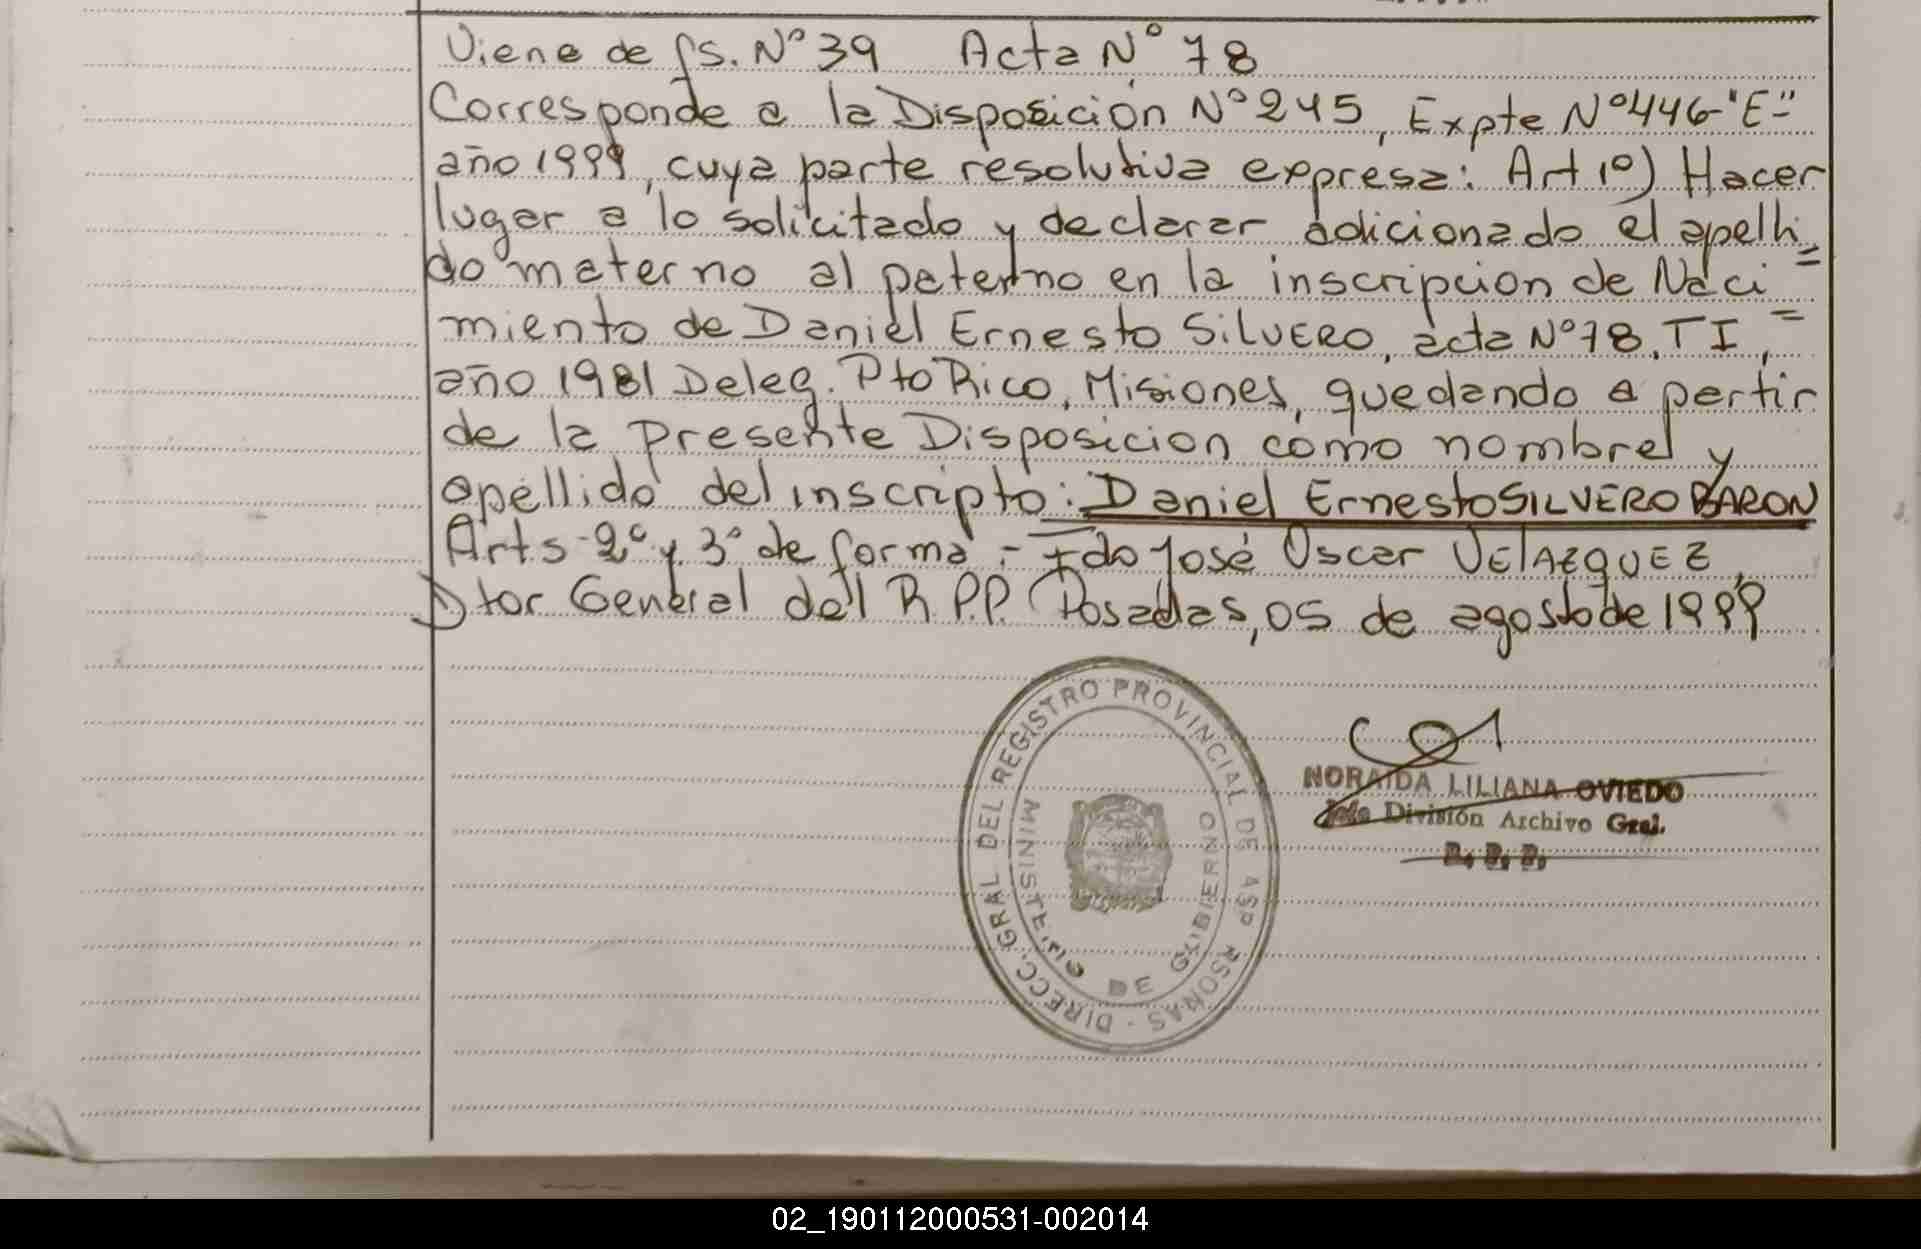 Viene de fs. Nº 39 Acta Nº 78
Corresponde a la Disposición Nº 245, Expte Nº 446-"E"-
año 1999, cuya parte resolutiva expresa: Art 1º) Hacer
lugar a lo solicitado y declarar adicionado el apelli=
do materno al paterno en la inscripcion de Naci=
miento de Daniel Ernesto SILVERO, acta Nº 78, T I,
año 1981 Deleg. Pto Rico, Misiones, quedando a partir
de la presente Disposicion como nombre y
apellido del inscripto: Daniel Ernesto SILVERO BARON
Arts. 2º y 3º de forma.- Fdo José Oscar VELAZQUEZ,
Dtor General del R.P.P. Posadas, 05 de agosto de 1999
DIRECC. GRAL DEL REGISTRO PROVINCIAL DE
MINISTERIO DE GOBIERNO
NORAIDA LILIANA OVIEDO
Jefe División Archivo Gral.
02_190112000531-002014